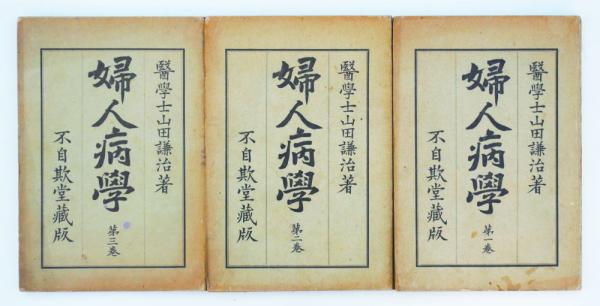 醫學士山田謙治著
婦人病學
第一卷
不自欺堂藏版
醫學士山田謙治著
婦人病學
第二卷
不自欺堂藏版
醫學士山田謙治著
婦人病學
第三卷
不自欺堂藏版